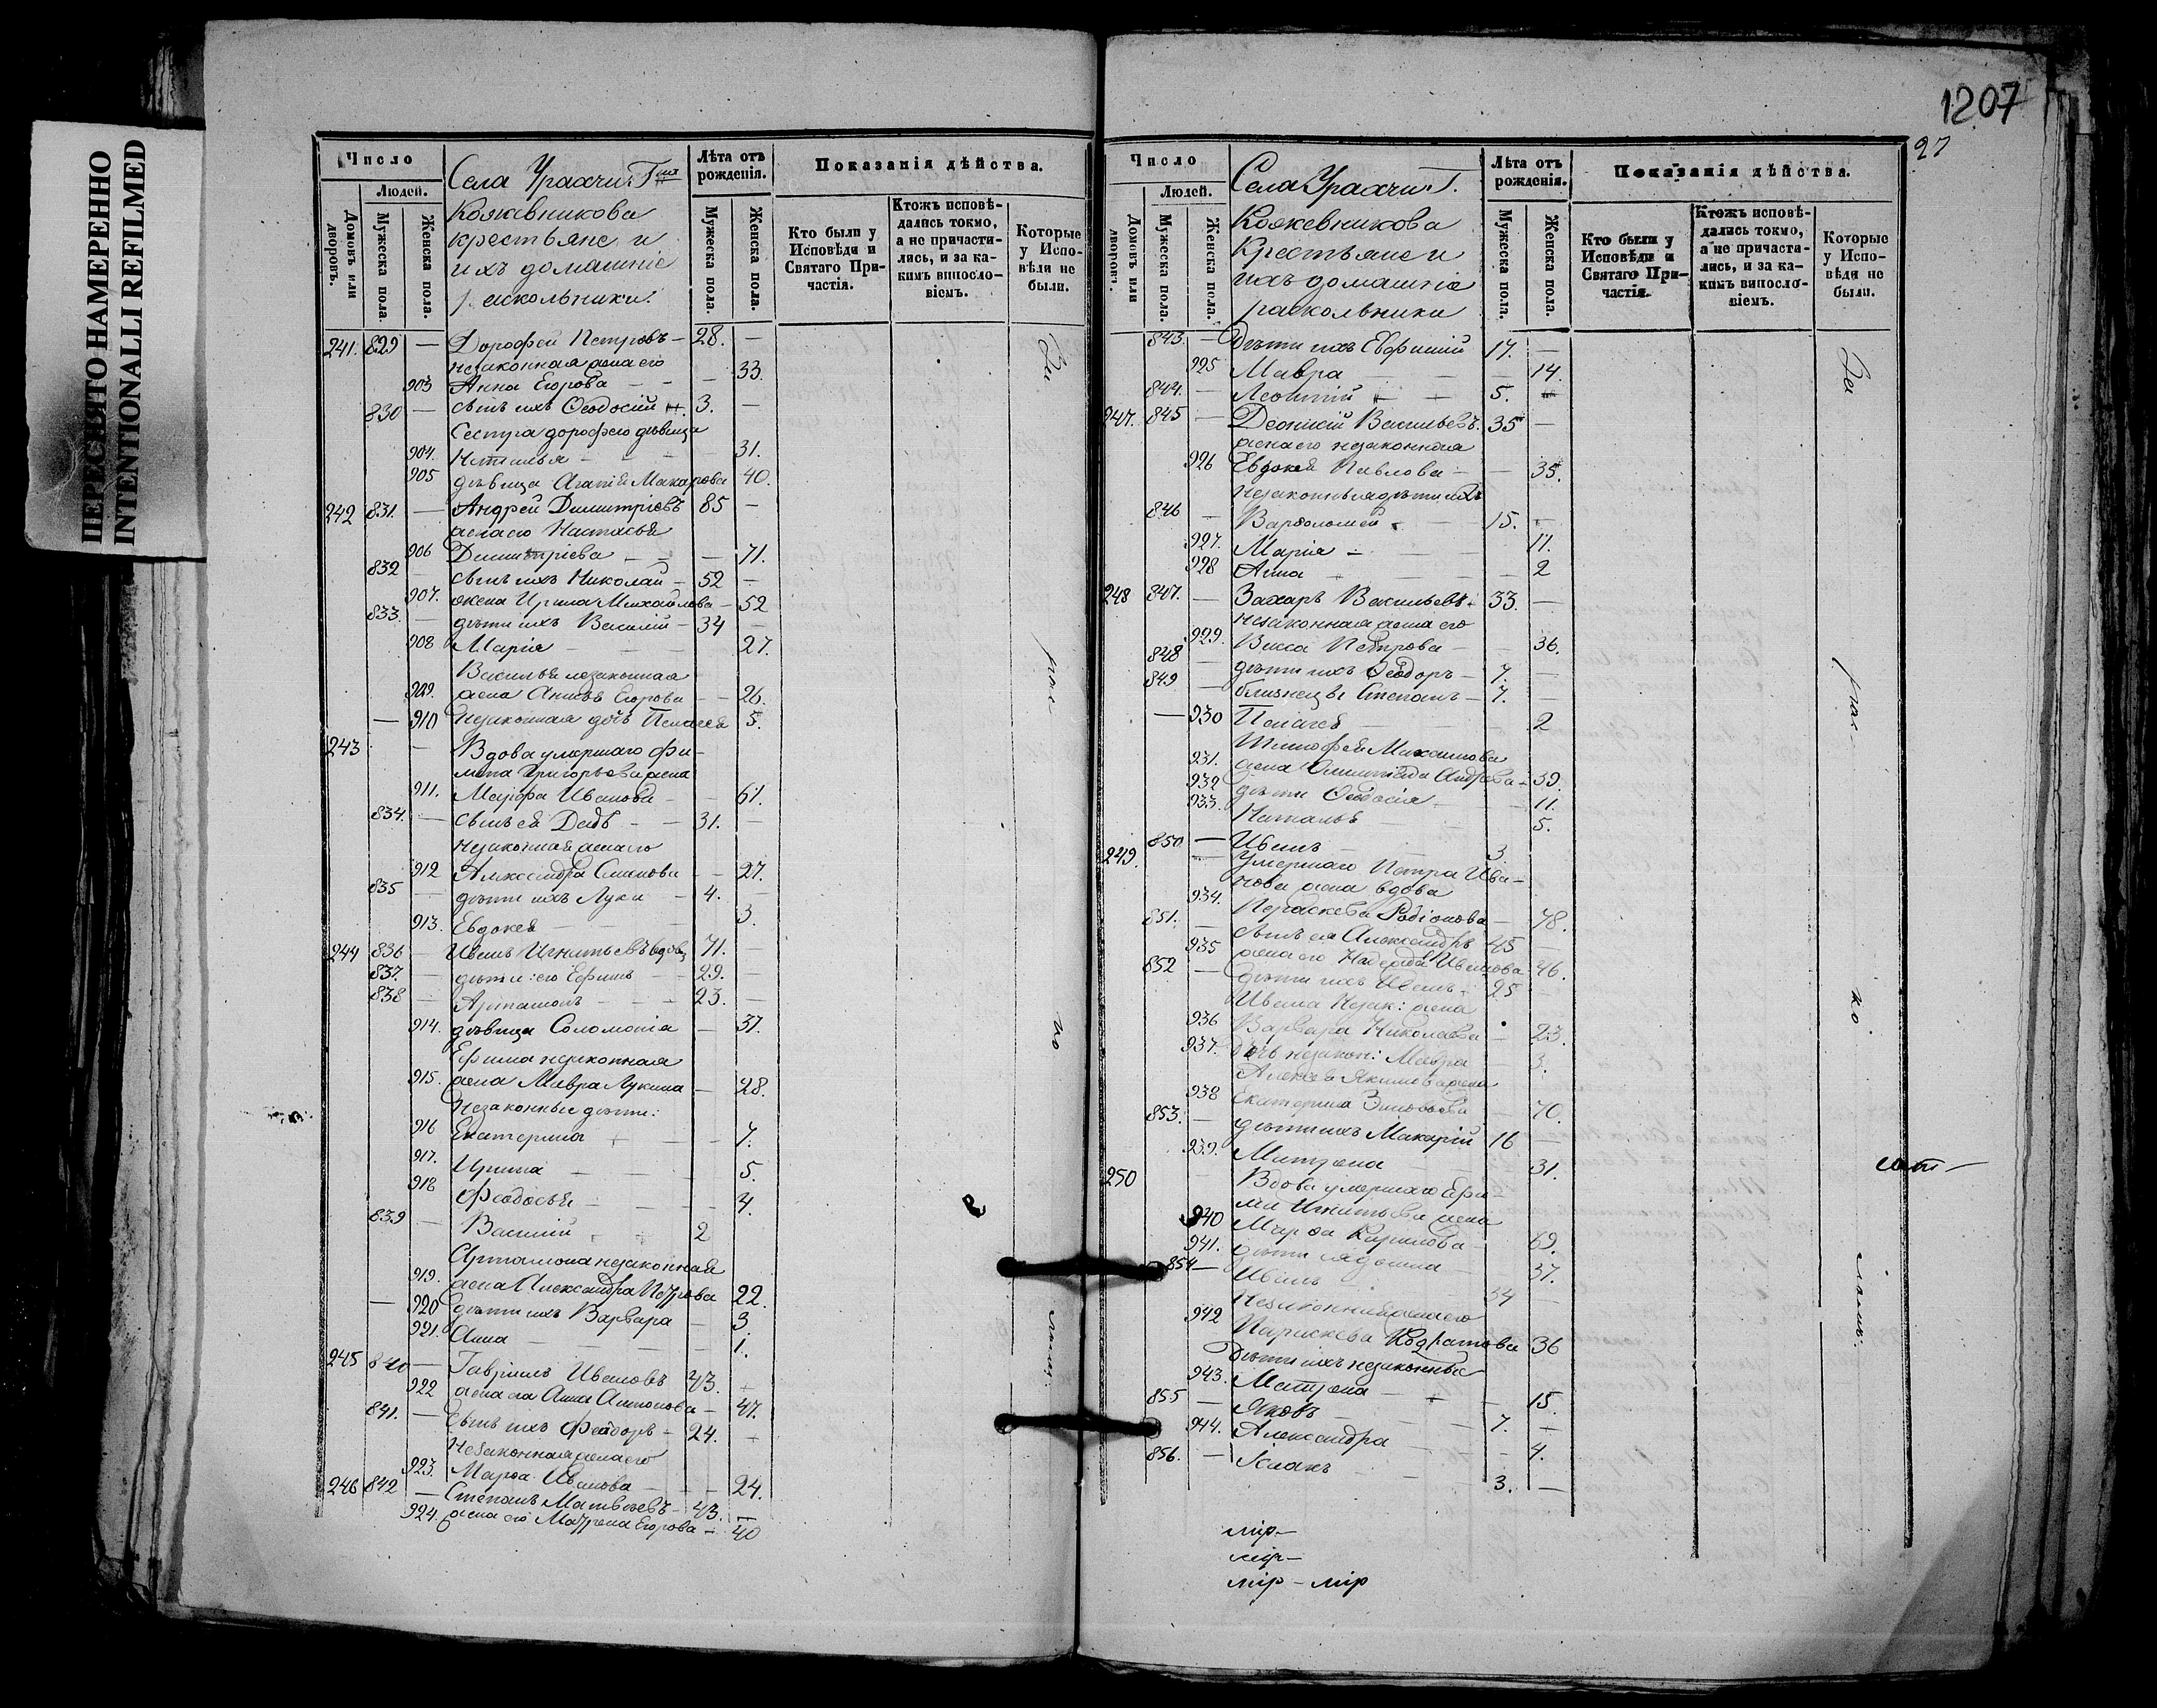 ПЕРЕСНЯТО НАМЕРЕННО
INTENTIONALLI REFILMED
Число
Людей.
Домовъ или дворовъ.
Мужеска пола.
Женска пола.
Села Урахчи Г
Кожевникова
крестьяне и
ихъ домашніе
раскольники:
Лѣта отъ рожденія.
Мужеска пола.
Женска пола.
Показанія дѣйства.
Кто были у Исповѣди и Святаго Причастія.
Ктожъ исповѣдались токмо, а не причастились, и за какимъ винословіемъ.
Которые у Исповѣди не были.
241. 829 — Дорофей Петровъ — 28. —
незаконная жена его
903 Анна Егорова — — — 33.
830 — сынъ ихъ Ѳеодосій 3. —
Сестра дорофея дѣвица
904. Наталья — — 31.
905 дѣвица Агапія Макарова 40.
242 831. — Андрей Димитріевъ 85 —
жена его Настасья
906 Димитріева — — — 71.
832 — сынъ ихъ Николай — 52 —
907. жена Ирина Михайлова — 52
833. — дѣти ихъ Василій — 34 —
908 Марія — — — 27.
Василья незаконная
909. жена Анисья Егорова — — 26.
— 910 незаконная дочь Пелагея 5.
243 — Вдова умершаго Фи-
липа Григорьева жена
911. Марфа Иванова — — 61.
834. — сынъ ея Діевъ — — 31. —
незаконная жена его
912 Александра Семенова — — 27.
835 — дѣти ихъ Лука — 4. —
913. Евдокея — — — 3.
244 836 — Иванъ Игнатьевъ вдовъ 71. —
837. — дѣти: его Ефимъ — 29. —
838 — Артамонъ — — — 23. —
914. дѣвица Соломонія — 37.
Ефима незаконная
915. жена Мавра Лукина — 28.
Незаконные дѣти:
916 Екатерина — — 7.
917. Ирина — — — 5.
918 Феодосья — — — 4.
839 — Василій 2
Артамона незаконная
919. жена Александра Петрова 22.
— 920 дѣти ихъ Варвара — 3
921. Анна — — — 1.
245 840 — Гавріилъ Ивановъ 43.
922 жена его Анна Антонова — 47.
841. — Сынъ ихъ Феодоръ — 24.
Незаконная жена его
923. Марѳа Иванова — — — 24.
246 842 — Степанъ Матвѣевъ — 43. —
924. жена его Матрена Егорова — 40
За
рас
ко
ломъ.
1207
27
Число
Людей.
Домовъ или дворовъ.
Мужеска пола.
Женска пола.
Села Урахчи Г.
Кожевникова
Крестьяне и
ихъ домашніе
раскольники
Лѣта отъ рожденія.
Мужеска пола.
Женска пола.
Показанія дѣйства.
Кто были у Исповѣди и Святаго Причастія.
Ктожъ исповѣдались токмо, а не причастились, и за какимъ винословіемъ.
Которые у Исповѣди не были.
843. — Дѣти ихъ Евфимій 17. —
925 Мавра — — 14.
844. — Леонтій 5.
247. 845 — Діонисій Васильевъ 35 —
жена его незаконная
926 Евдокея Павлова — — 35.
Незаконныя дѣти ихъ
846 — Варѳоломей — 15. —
927. Марія — 11.
928 Анна — — 2
248 847. — Захаръ Васильевъ 33. —
незаконная жена его
929. Васса Петрова — — 36.
848 — дѣти ихъ Ѳеодоръ — 7. —
849 — близнецы Степанъ — 7. —
— 930 Пелагея 2
Тимофея Михайлова
931. жена Олимпіада Андреева — 39.
932 дѣти Ѳеодосія — 11.
933. Наталья 5.
850 — Иванъ — 3.
249. — Умершаго Петра Ива-
нова жена вдова
934. Параскева Родіонова — 78.
851. — сынъ ея Александръ 45 —
935 жена его Надежда Иванова 46.
852 — дѣти ихъ Иванъ — 25 —
Ивана Незак: жена
936 Варвара Николаева — 23.
937. Дочь незакон: Мавра — 3.
Алексея Якимова жена
938 Екатерина Зиновьева — 70.
853. — дѣти ихъ Макарій 16 —
939. Матрена 31.
250 Вдова умершаго Ефи-
ма Игнатьева жена
940 Марѳа Кирилова — 69.
941. дѣти 37.
854 — Иванъ 34 —
Незаконная жена его
942 Параскева Кодратова 36
Дѣти ихъ незаконные
943. Матрена — 15.
855 — Яковъ — 7. —
944. Александра — 4.
856. — Исаакъ — 3. —
За
рас
ко
ломъ.
мір—
мір—
мір — мір